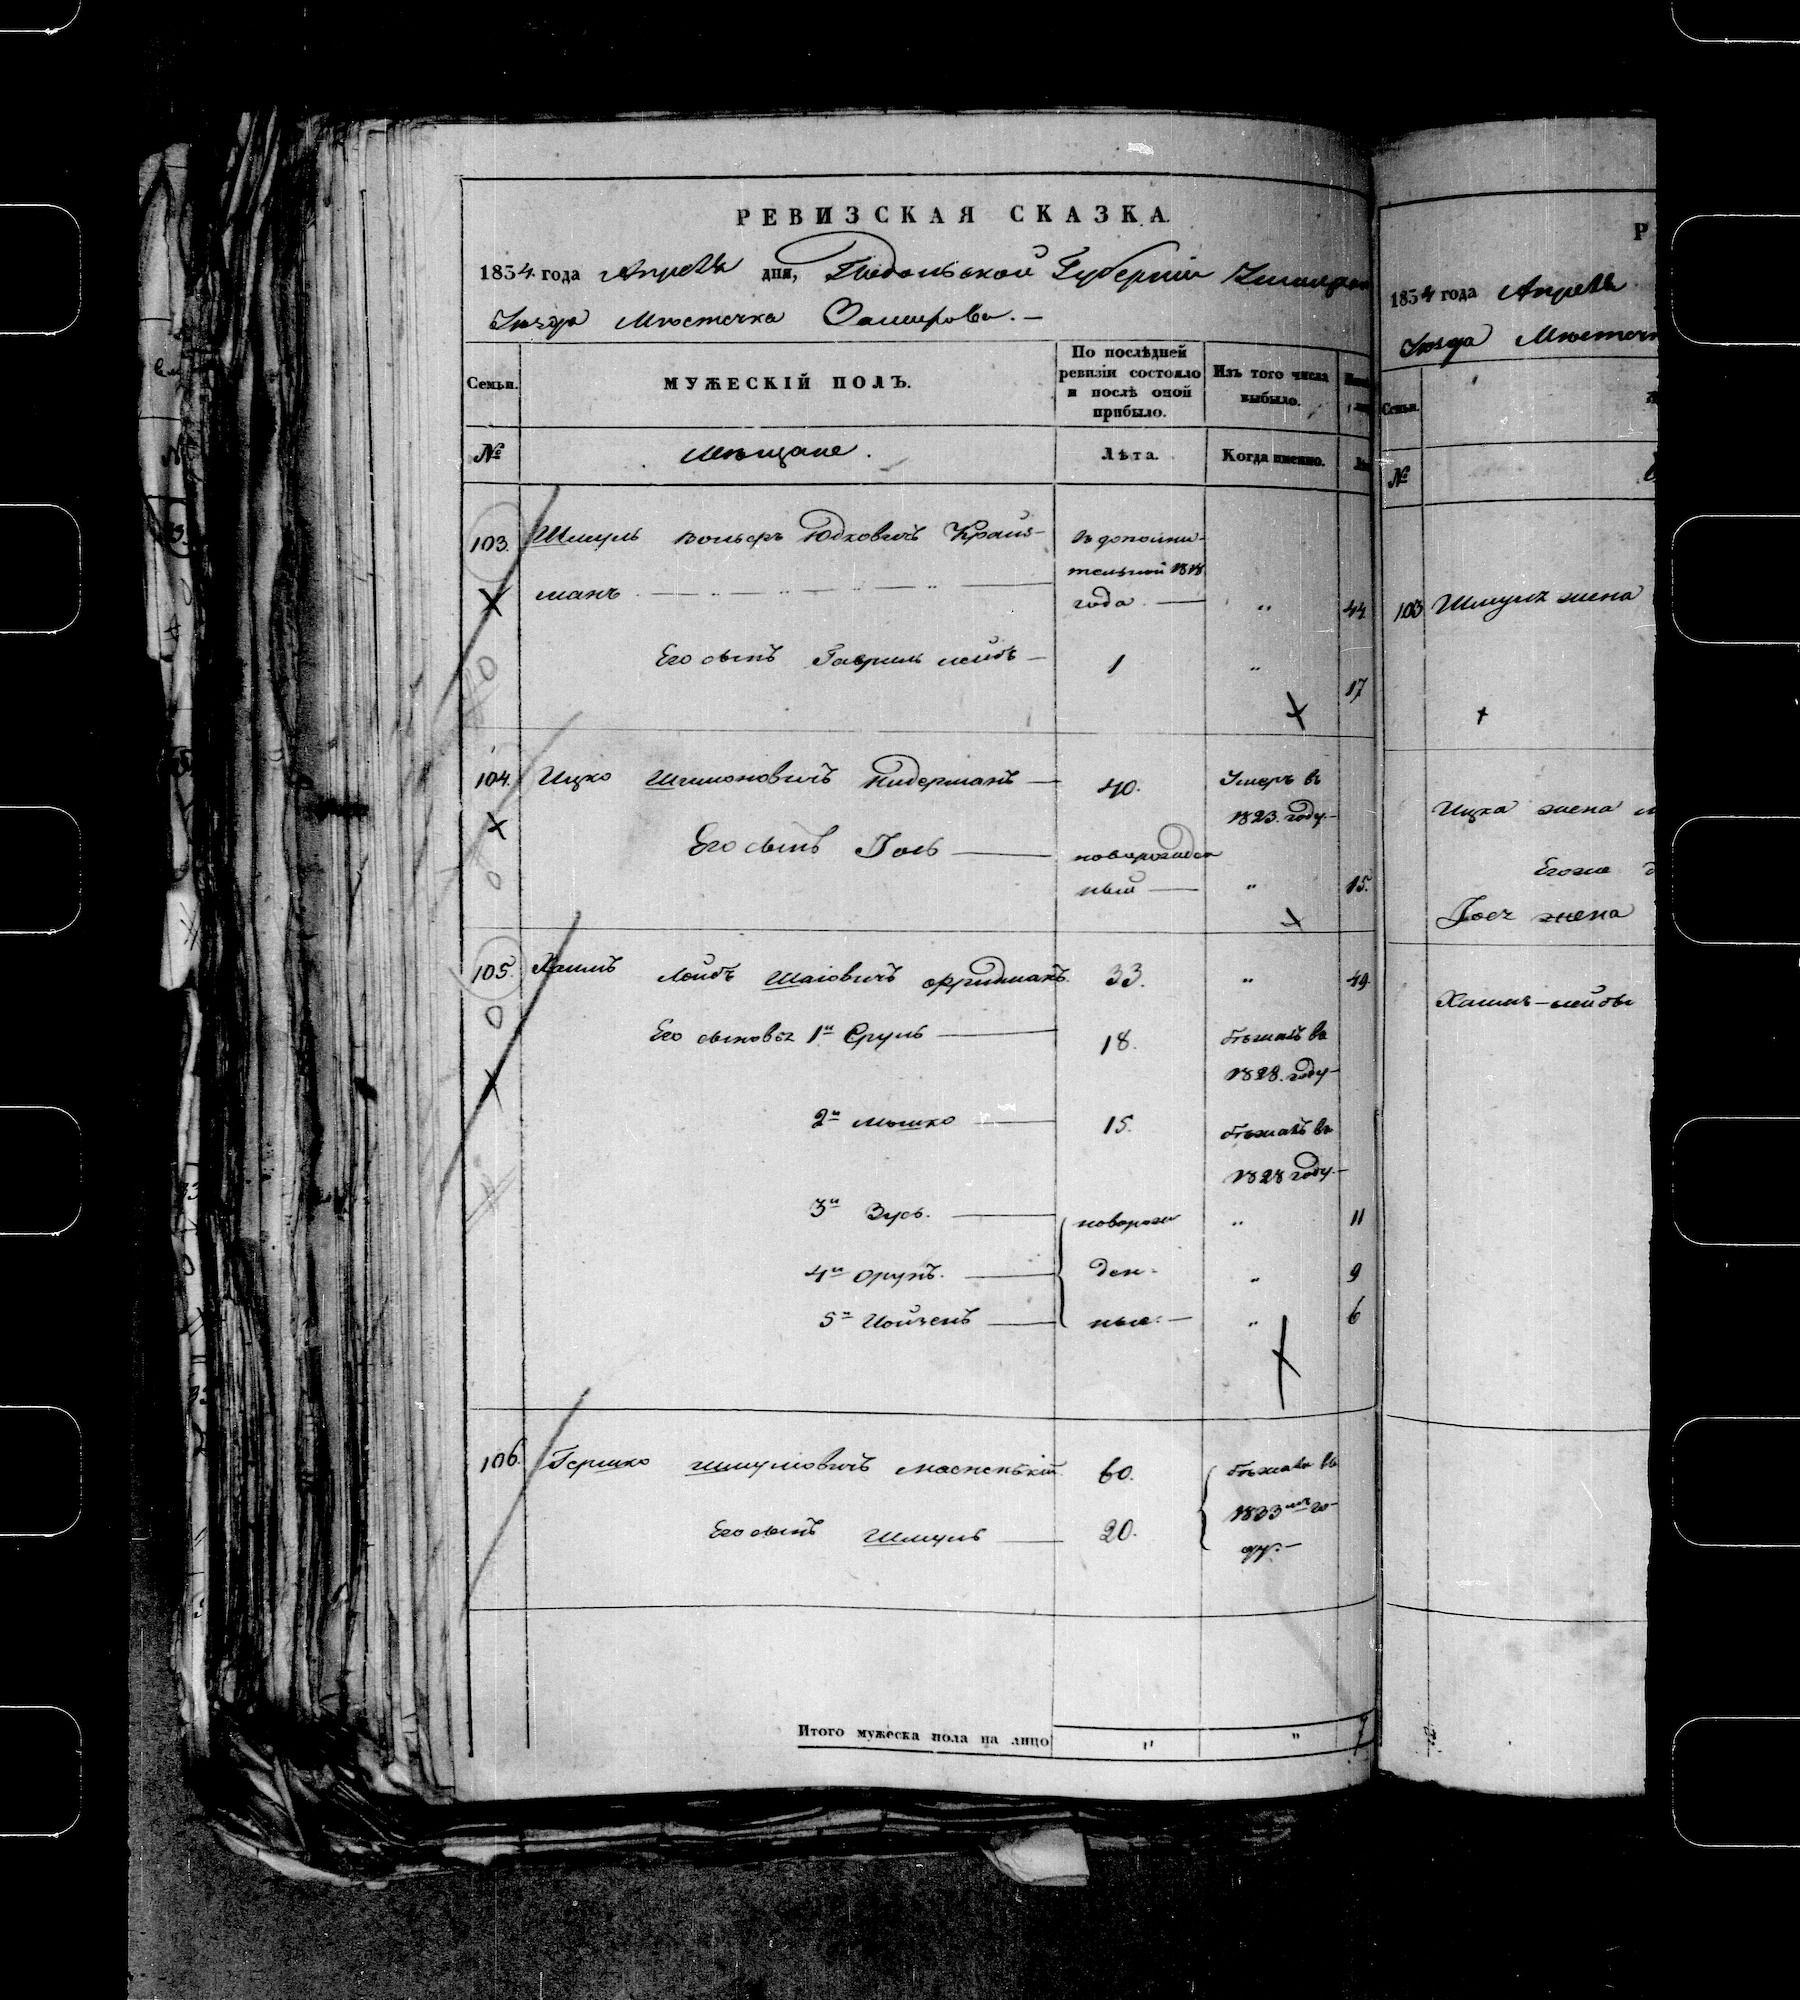 РЕВИЗСКАЯ СКАЗКА.
1834 года Апреля дня, Подольской Губернии
Уезда Местечка
Семьи. МУЖЕСКІЙ ПОЛЪ. По послѣдней ревизіи состояло и послѣ оной прибыло. Изъ того числа выбыло.
№ Мещане. Лѣта. Когда именно.
103. Шмуль Вольфъ Юдковичъ Край- въ дополни-
тельной 1818
манъ года „ 44
Его сынъ Гавриль Лейбъ 1 „ 17
104. Ицко Шимоновичъ Лидерманъ 40. Умеръ въ
1823. году.
Его сынъ Іось новорожден
ный „ 15.
105. Хаимъ Лейбъ Шаіовичъ Фридманъ. 33. „ 49.
Его сыновья 1й Сруль 18. бежалъ въ
1828. году
2й Мошко 15. бежалъ въ
1828 году.
3й Зусь. новорож „ 11
4й Орунъ. ден- „ 9
5й Иойзепъ ные. „ 6
106. Гершко Шмулiовичъ 60. бежали въ
1833мъ го-
Его сынъ Шмуль 20. ду.
Итого мужеска пола на лицо „ „ 7
Р
1834 года Апреля
Уезда Местечк
Семьи.
№
103 Шмуля жена
Ицка жена
Егоже д
Іося жена
Хаимъ-Лейбы